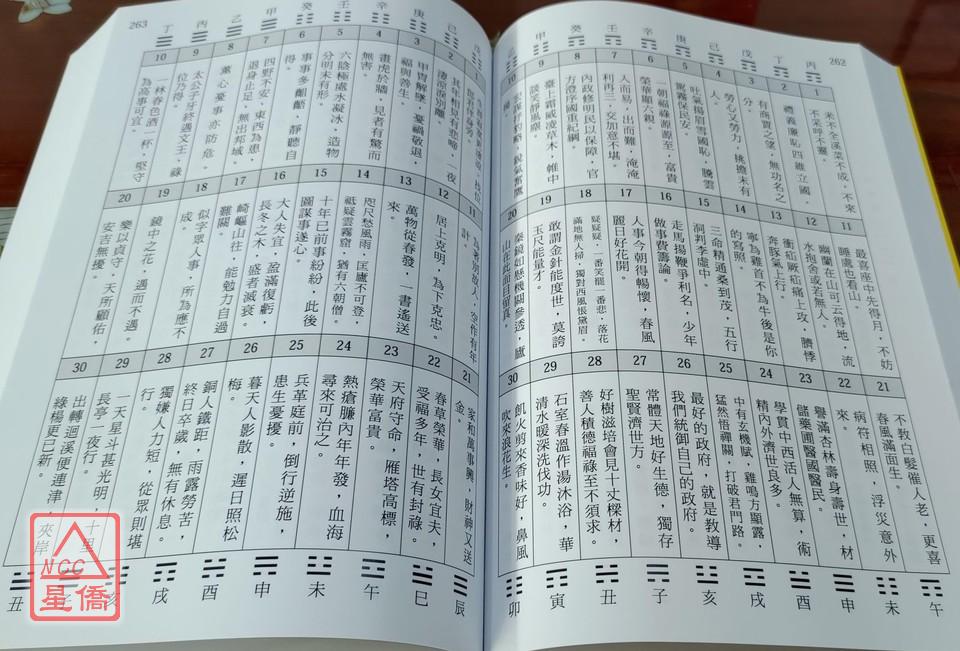 262
丙
丁
戊
己
庚
辛
壬
癸
甲
1
米不全溪菜不成，不來
不采呼不靈。
2
禮義廉恥四維立國，
有商賈之望，無功名之
分。
3
勞心又勞力，挑擔未有
人。
4
吐氣揚眉雪國恥，騰雲
駕霧保民安。
5
一朝福祿源源至，富貴
榮華顯六親。
6
人而易，出而難，淹淹
利再三，交加意不堪。
7
內政修明民以保障，官
方澄序國重紀綱。
8
臺上霜威凌草木，帷中
談笑靜風塵。
9
10
11
最喜座中先得月，不妨
睡處也看山。
12
幽蘭在山可云得地，流
水抱舍或若無人。
13
衝疝厥疝痛上攻，臍悸
奔豚氣上行。
14
寧為雞首不為牛後是你
的寫照。
15
三命精通桑到茂，五行
洞判李虛中。
16
走馬揚鞭爭利名，少年
做事費籌論。
17
人事今朝得暢懷，春風
麗日好花開。
18
疑疑疑，一番笑罷一番悲，落花
滿地無人掃，獨對西風悵黛眉。
19
敢謂金針能度世，莫誇
玉尺能量才。
20
秦鏡如懸機關參透，廬
山在此面目留真。
21
不教白髮催人老，更喜
春風滿面生。
22
病符相照，浮災意外
來。
23
譽滿杏林壽身壽世，材
儲藥圃醫國醫民。
24
學貫中西活人無算，術
精內外濟世良多。
25
中有玄機賦，雞鳴方顯露，
猛然悟禪關，打破君門路。
26
最好的政府，就是教導
我們統御自己的政府。
27
常體天地好生德，獨存
聖賢濟世方。
28
好樹滋培會見十丈樑材，
善人積德福祿至不須求。
29
石室春溫作湯沐浴，華
清水暖深洗伐功。
30
飢火剪來香味好，鼻風
吹來浪花生。
午
未
申
酉
戌
亥
子
丑
寅
卯
263
戊
己
庚
辛
壬
癸
甲
乙
丙
丁
1
2
其年相見子悲啼，一夜
淒涼淚別離。
3
甲冑解墜，憂禍敬退，
福與善生。
4
畫虎於牆，見者有驚而
無害。
5
六陰極處水凝冰，造物
分明未有形。
6
事事多齟齬，靜聽自
得。
7
四野不安，東西為患，
退身止足，無出邦域。
8
薰心憂事亦防危。
9
太公子牙終遇文王，祿
位乃得。
10
一林春色酒一杯，堅守
為高事可宜。
11
為著別故人，空作有年
計。
12
居上克明，為下克忠。
13
萬物從春發，一書遙送
來。
14
咫尺愁風雨，匡廬不可登，
祗疑雲霧窟，猶有六朝僧。
15
十年已前事紛紛，此後
圖謀事遂心。
16
大人失宜，盈滿復虧，
長冬之木，盛者滅衰。
17
崎嶇山往，能勉力自過
難關。
18
似字眾人事，所為應不
成。
19
鏡中之花，遇而不遇。
20
樂以貞守，天所顧佑，
安吉無擾。
21
家和萬事興，財神又送
金。
22
春草榮華，長女宜夫，
受福多年，世有封祿。
23
天府守命，雁塔高標，
榮華富貴。
24
熱瘡臁內年年發，血海
尋來可治之。
25
兵革庭前，倒行逆施，
患生憂擾。
26
暮天人影散，遲日照松
梅。
27
銅人鐵距，雨露勞苦，
終日卒歲，無有休息。
28
獨嫌人力短，從眾則堪
行。
29
一天星斗甚光明，十里
長亭一夜行。
30
出轉迴溪便連津，夾岸
綠楊更已新。
辰
巳
午
未
申
酉
戌
亥
丑
NCC
星僑